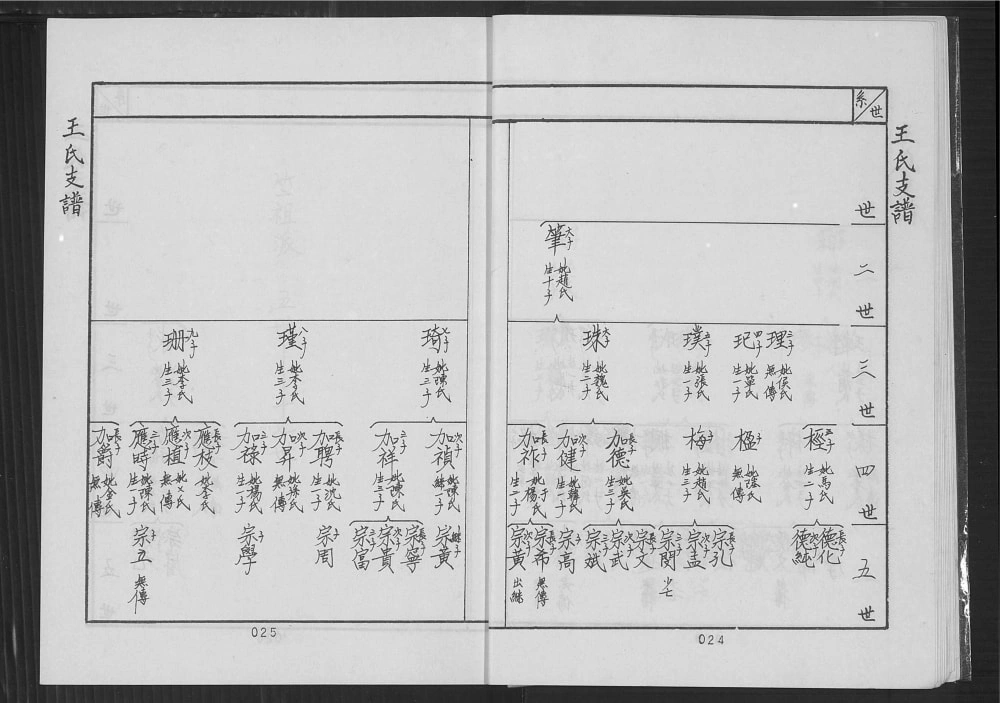 王氏支譜
系世
世
二世
三世
四世
五世
筆 六子 妣趙氏 生十子
理 三子 妣侯氏 無傳
玘 四子 妣單氏 生一子
璞 五子 妣張氏 生一子
珠 六子 妣魏氏 生二子
桱 五子 妣馬氏 生二子
楹 子 妣孫氏 無傳
梅 子 妣趙氏 生三子
加德 長子 妣吳氏 生三子
加健 次子 妣韓氏 生一子
加祚 長子 妣于楊氏 生二子
德化 長子
德純 次子
宗孔 長子
宗孟 次子
宗閔 三子 少亡
宗文 長子
宗武 次子
宗斌 三子
宗高 子
宗希 長子 無傳
宗黄 次子 出継
024
琦 七子 妣陳氏 生三子
瑾 八子 妣李氏 生三子
珊 九子 妣李氏 生三子
加禎 次子 妣陳氏 継一子
加祥 三子 妣陳氏 生三子
加聘 長子 妣沈氏 生一子
加昇 次子 妣孫氏 無傳
加祿 三子 妣楊氏 生一子
應枝 長子 妣李氏
應植 次子 無傳
應時 三子 妣陳氏 生一子
加爵 長子 妣金氏 無傳
宗黄 継子
宗寧 長子
宗貴 次子
宗富 三子
宗周 子
宗學 子
宗五 子 無傳
025
王氏支譜